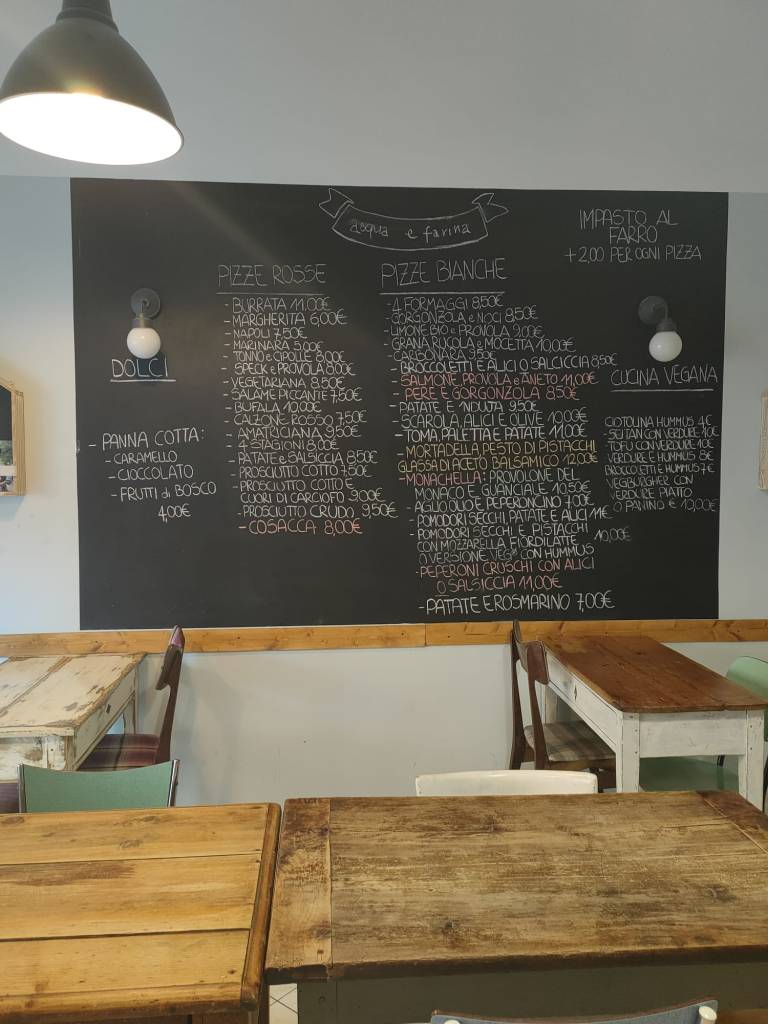 acqua e farina
IMPASTO AL
FARRO
+2,00 PER OGNI PIZZA
DOLCI
- PANNA COTTA:
- CARAMELLO
- CIOCCOLATO
- FRUTTI di BOSCO
4,00€
PIZZE ROSSE
- BURRATA 11,00€
- MARGHERITA 6,00€
- NAPOLI 7,50€
- MARINARA 5,00€
- TONNO e CIPOLLE 8,00€
- SPECK e PROVOLA 8,00€
- VEGETARIANA 8,50€
- SALAME PICCANTE 7,50€
- BUFALA 10,00€
- CALZONE ROSSO 7,50€
- AMATRICIANA 9,50€
- 4 STAGIONI 8,00€
- PATATE e SALSICCIA 8,50€
- PROSCIUTTO COTTO 7,50€
- PROSCIUTTO COTTO E
CUORI DI CARCIOFO 9,00€
- PROSCIUTTO CRUDO 9,50€
- COSACCA 8,00€
PIZZE BIANCHE
- 4 FORMAGGI 8,50€
- GORGONZOLA e NOCI 8,50€
- LIMONE BIO e PROVOLA 9,00€
- GRANA, RUCOLA e MOCETTA 10,00€
- CARBONARA 9,50€
- BROCCOLETTI E ALICI O SALCICCIA 8,50€
- SALMONE, PROVOLA e ANETO 11,00€
- PERE E GORGONZOLA 8,50€
- PATATE E 'NDUJA 9,50€
- SCAROLA ALICI E OLIVE 10,00€
- TOMA PALETTA E PATATE 11,00€
- MORTADELLA PESTO DI PISTACCHI
GLASSA DI ACETO BALSAMICO 12,00€
- MONACHELLA: PROVOLONE DEL
MONACO E GUANCIALE 10,50€
- AGLIO OLIO E PEPERONCINO 7,00€
- POMODORI SECCHI, PATATE E ALICI 11€
- POMODORI SECCHI E PISTACCHI
CON MOZZARELLA FIORDILATTE 10,00€
O VERSIONE VEG® CON HUMMUS
- PEPERONI CRUSCHI CON ALICI
O SALSICCIA 11,00€
- PATATE E ROSMARINO 7,00€
CUCINA VEGANA
CIOTOLINA HUMMUS 4€
SEITAN CON VERDURE
TOFU CON VERDURE 10€
VERDURE E HUMMUS 8€
BROCCOLETTI E HUMMUS 7€
VEGBURGHER CON
VERDURE PIATTO
O PANINO €